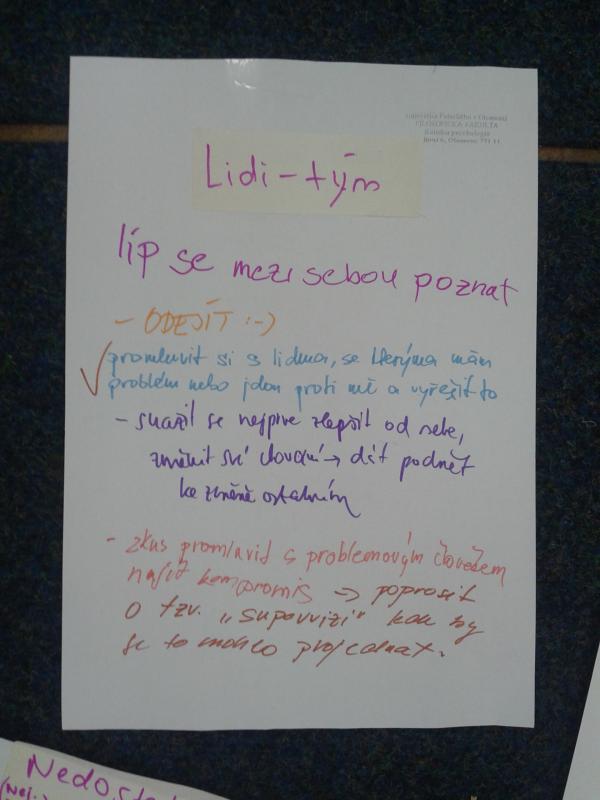 Univerzita Palackého v Olomouci
FILOZOFICKÁ FAKULTA
Katedra psychologie
6, Olomouc 771 11
Lidi - tým
líp se mezi sebou poznat
- ODEJÍT :-)
promluvit si s lidma, se kterýma mám
problém nebo jdou proti mě a vyřešit to
- snažit se nejprve zlepšit od sebe,
změnit své chování → dát podnět
ke změně ostatním
- zkus promluvit s problémovým člověkem
najít kompromis => poprosit
o tzv. „supervizi" kde by
se to mohlo projednat.
Nedost